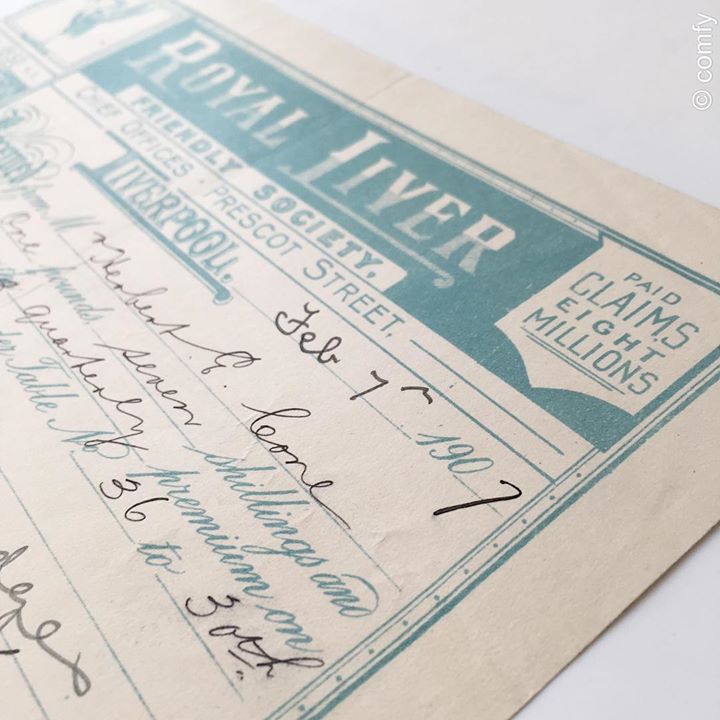 © comfy
ROYAL LIVER
FRIENDLY SOCIETY.
CHIEF OFFICES · PRESCOT STREET,
LIVERPOOL.
PAID
CLAIMS
EIGHT
MILLIONS
Feb 7th 1907
from M r Herbert E. Cone
One pounds seven shillings and
quarterly premium on
Table No 36 to 30th